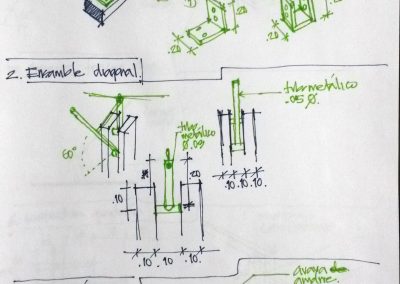 .20
.20
.20
2. Ensamble diagonal.
tubo metálico
.05 Ø.
tubo
metálico
Ø .05
60°
.10
.20
.10 .10 .10.
.10 .10 .10